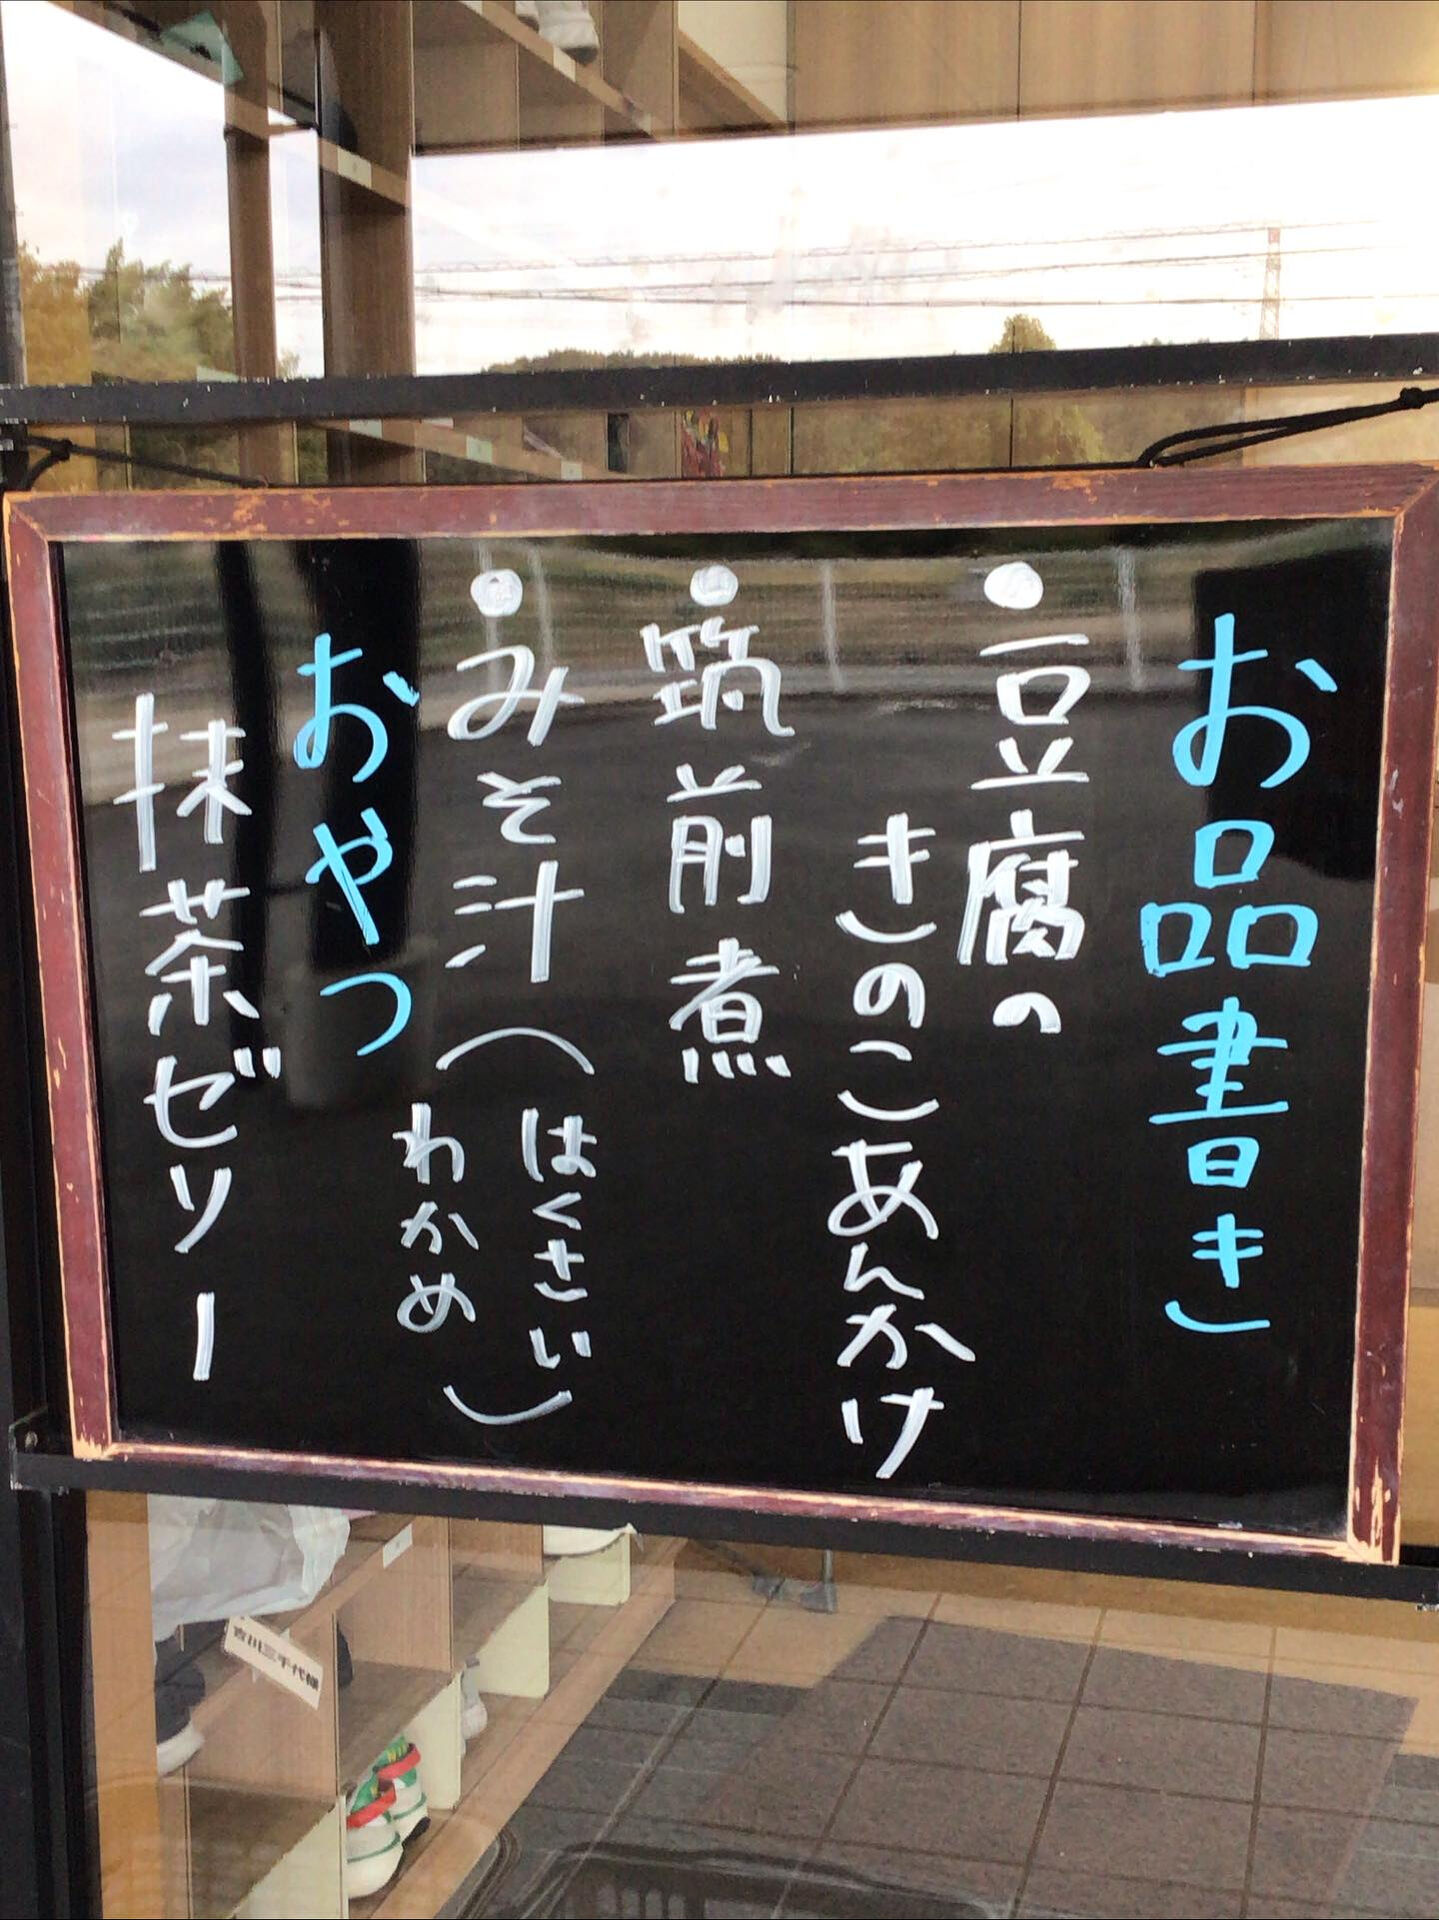 お品書き
●豆腐の
きのこあんかけ
●筑前煮
●みそ汁(はくさい
わかめ)
おやつ
抹茶ゼリー